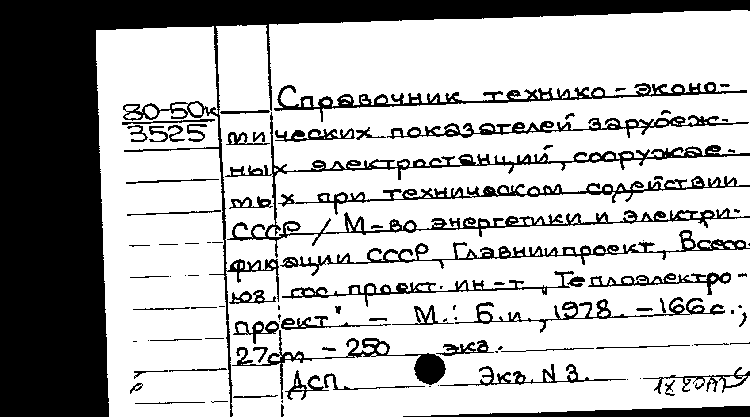 80-50к
3525
Справочник технико-эконо-
мических показателей зарубеж-
ных электростанций, сооружае-
мых при техническом содействии
СССР / М-во энергетики и электри-
фикации СССР, Главниипроект, Всесо-
юз. гос. проект. ин-т "Теплоэлектро-
проект". - М.: Б.и., 1978. - 166 с.;
27см. - 250 экз.
ДСП. Экз. N 3.